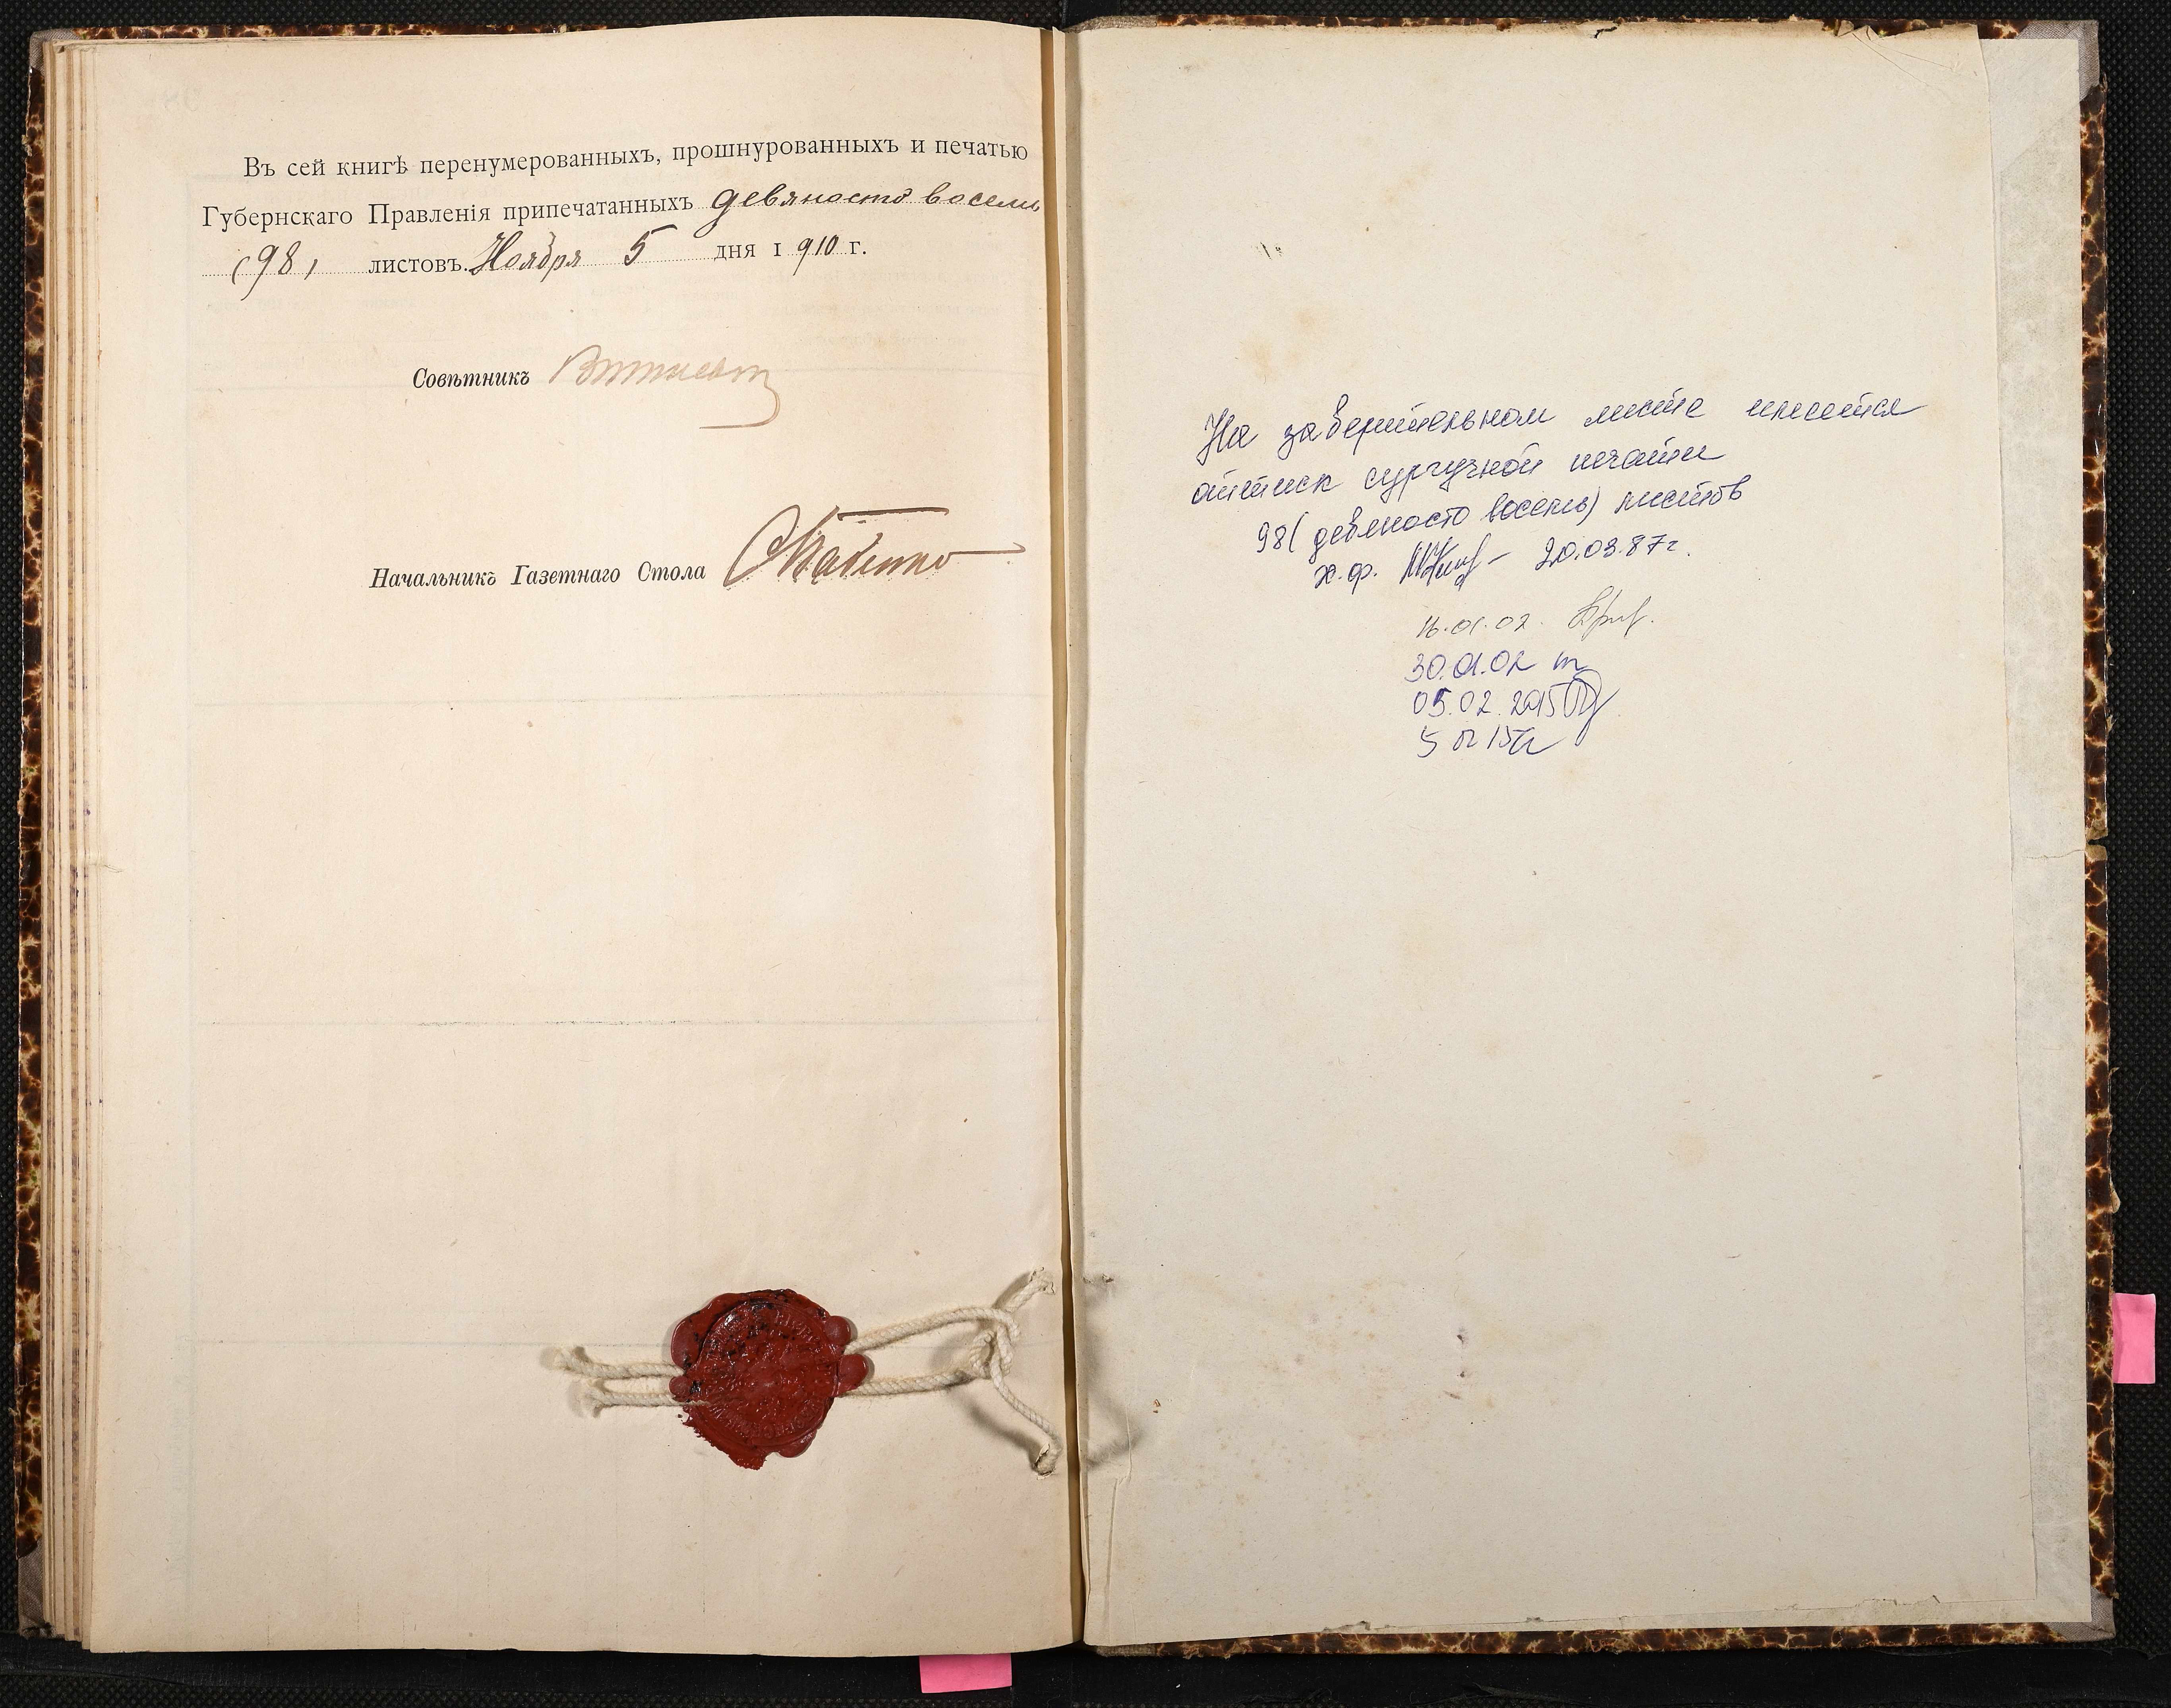 Въ сей книгѣ перенумерованныхъ, прошнурованныхъ и печатью
Губернскаго Правленія припечатанныхъ девяносто восемь
(98) листовъ. Ноября 5 дня 1910 г.
Совѣтникъ
Начальникъ Газетнаго Стола
На заверительном листе имеется
оттиск сургучной печати
98 (девяносто восемь) листов
х.ф. 20.03.87г.
16.01.02.
30.01.02
05.02.2015
5 02 15